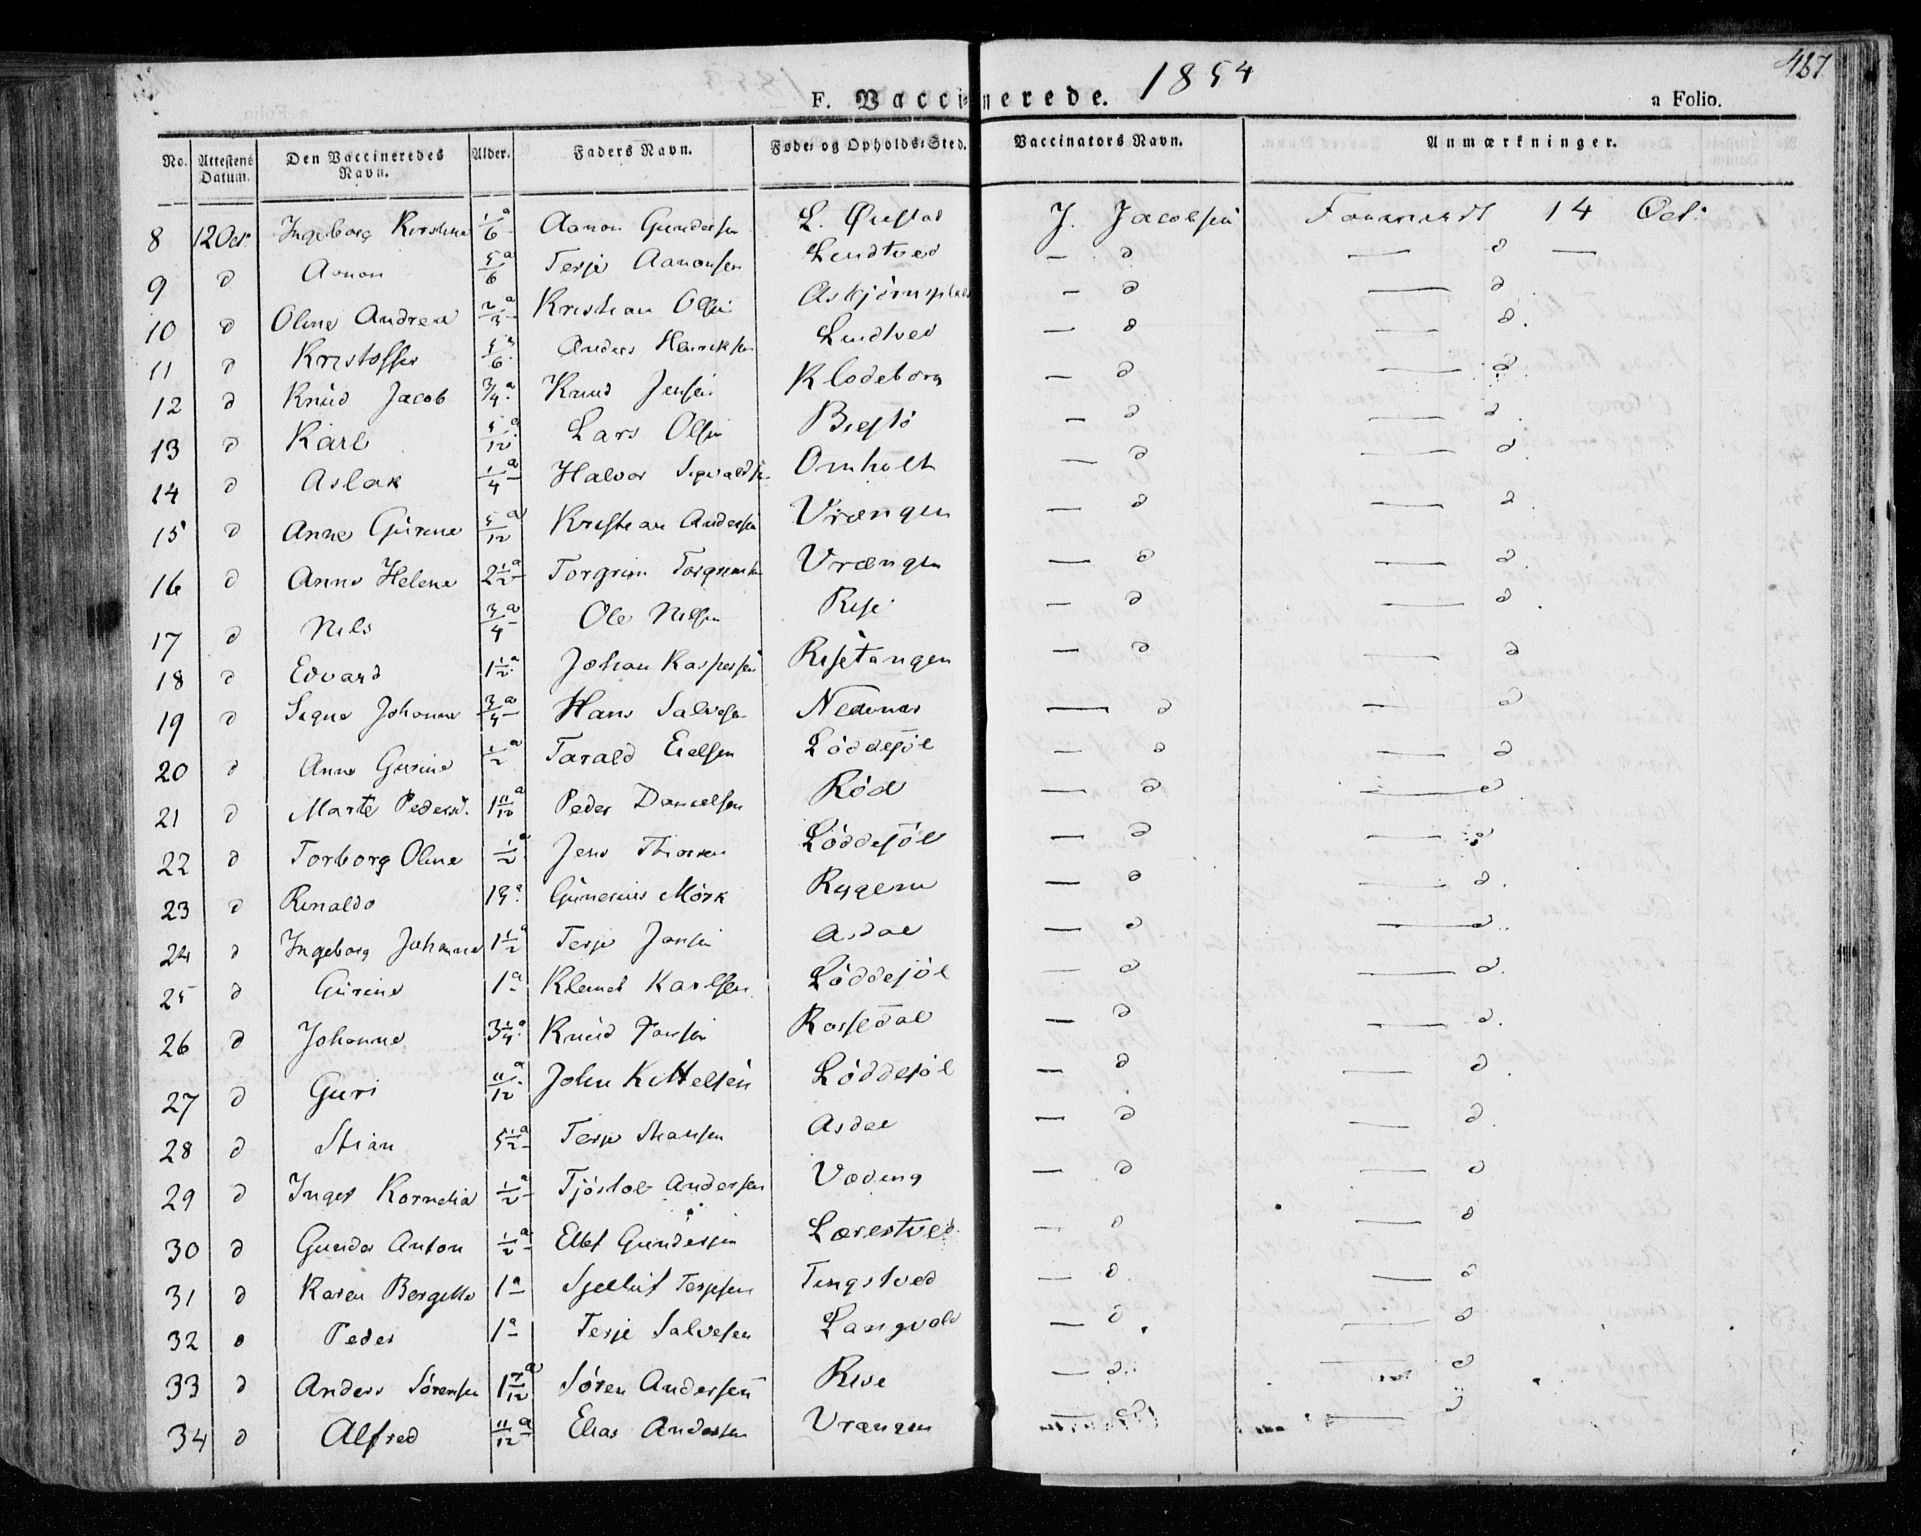 467
1854
F. Vaccinerede. a Folio.
No. Attestens Datum. Den Vaccineredes Navn. Alder. Faders Navn. Føde- og Opholds-Sted. Vaccinators Navn. Anmærkninger.
8 12 Oct. Ingeborg Kirstine 1/6 a Aanon Gundersen L. Øiestad J. Jacobsen 14 Oct.
9 d Aanon 5/6 a Terje Aanonsen Lundtved — d — d —
10 d Oline Andrea 2/3 a Kristian Olsen Asbjörnsplads — d — d
11 d Kristoffer 5/6 a Anders Henriksen Lundtved — d — d.
12 d Knud Jacob 3/4 a Knud Jensen Klodeborg — d — d
13 d Karl 5/12 a Lars Olsen — d — d
14 d Aslak 1/4 a Halvor Sigvaldsen Omholt — d — d.
15 d Anne Gurine 5/12 a Kristian Andersen Vrængen — d — d
16 d Anne Helene 2 1/2 a Torgrim Torgrimsen Vrængen — d — d.
17 d Nils 3/4 a Ole Nilsen Rise — d — d
18 d Edvard 1 1/2 a Johan Kaspersen Risetangen — d — d
19 d Signe Johanne 3/4 a Hans Salvesen Nedenes — d — d
20 d Anne Gurine 1/2 a Tarald Löddesöl — d — d
21 d Marte Pedersd. 1 11/12 a Peder Danielsen Röd — d — d
22 d Torborg Oline 1/2 a Jens Löddesöl — d — d
23 d Rinaldo 19 a Gunerius Mörk Rygene — d — d.
24 d Ingeborg Johanne 1 1/2 a Terje Jansen Asdal — d — d.
25 d Gurine 1 a Klemet Karlsen Löddesöl — d — d.
26 d Johanne 3 1/4 a Knud Jansen Rossedal — d — d.
27 d Guri 11/12 a John Kittelsen Löddesöl — d — d
28 d Stian 5 1/2 a Terje Asdal — d — d.
29 d Inger Kornelia 1/2 a Tjöstol Andersen — d — d
30 d Gunder Anton 1/2 a Ellef Gundersen Lærestved — d — d
31 d Karen Bergitte 1 a Terjesen Tingstved — d — d
32 d Peder 1 a Terje Salvesen Langvold — d — d
33 d Anders Sörensen 1 7/12 a Sören Andersen Rise — d — d
34 d Alfred 11/12 a Elias Andersen Vrængen — d —